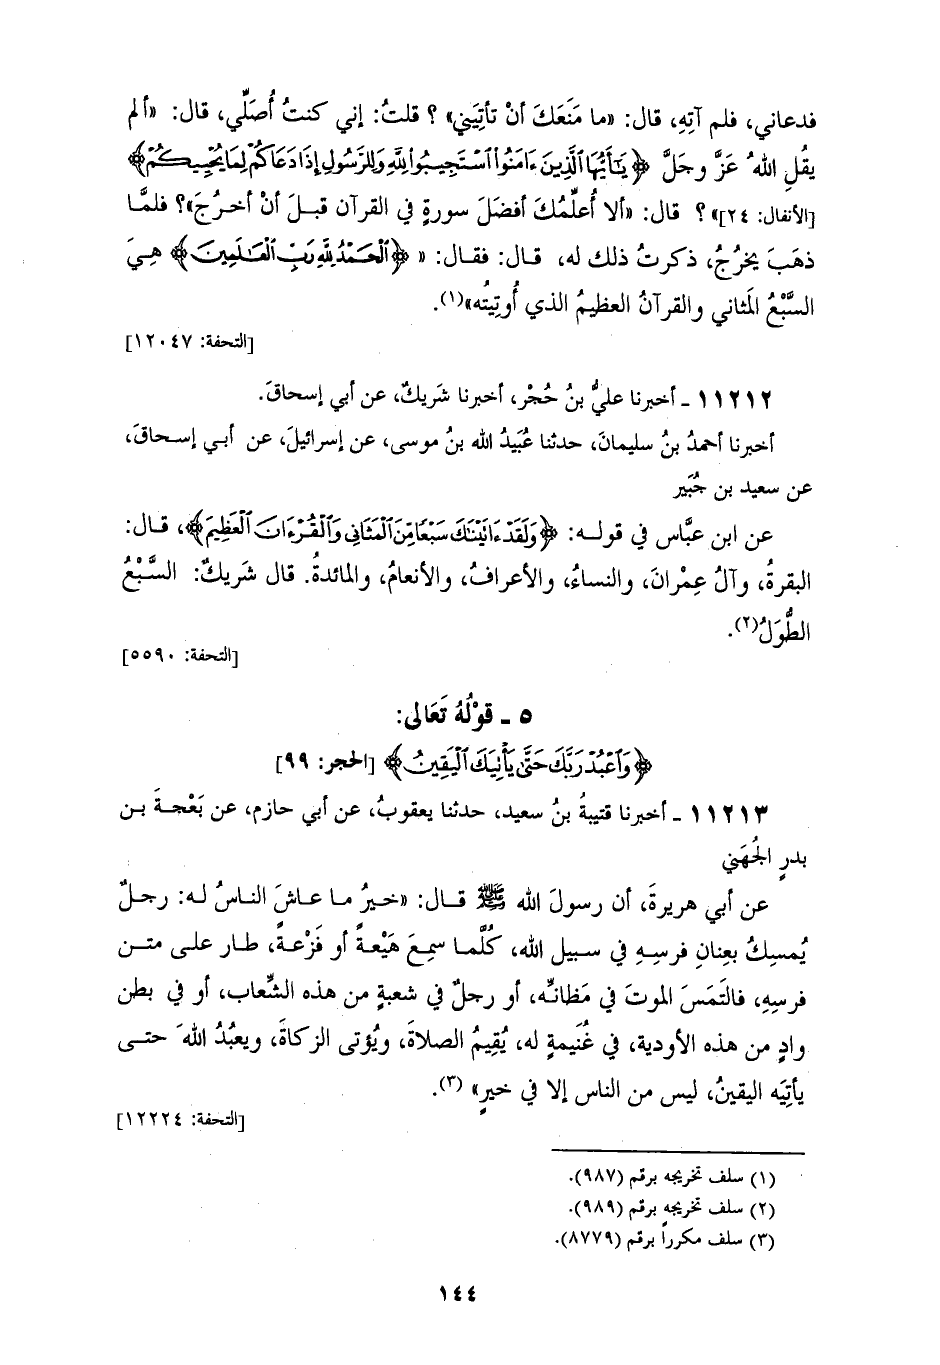 فدعاني، فلم آتِهِ، قال: «ما مَنَعَكَ أنْ تأتِيَني» ؟ قلتُ: إني كنتُ أُصَلِّي، قال: «ألم
يقُلِ اللهُ عَزَّ وجَلَّ ﴿يَٰٓأَيُّهَا ٱلَّذِينَ ءَامَنُوا۟ ٱسْتَجِيبُوا۟ لِلَّهِ وَلِلرَّسُولِ إِذَا دَعَاكُمْ لِمَا يُحْيِيكُمْ﴾
[الأنفال: ٢٤]» ؟ قال: «ألا أُعلِّمُكَ أفضَلَ سورةٍ في القرآن قبـلَ أنْ أخـرُجَ»؟ فلمَّـا
ذهَبَ يخرُجُ، ذكرتُ ذلك له، قـال: فقـال: « ﴿ٱلْحَمْدُ لِلَّهِ رَبِّ ٱلْعَٰلَمِينَ﴾ هـيَ
السَّبْعُ المَثاني والقرآنُ العظيمُ الذي أُوتِيتُه»(١).
[التحفة: ١٢٠٤٧]
١١٢١٢ - أخبرنا عليُّ بنُ حُجْر، أخبرنا شَريكٌ، عن أبي إسحاقَ.
أخبرنا أحمدُ بنُ سليمانَ، حدثنا عُبَيدُ الله بنُ موسى، عن إسرائيلَ، عن أبـي إسـحاقَ،
عن سعيد بن جُبَير
عن ابن عبَّاس في قولـه: ﴿وَلَقَدْ ءَاتَيْنَٰكَ سَبْعًا مِّنَ ٱلْمَثَانِى وَٱلْقُرْءَانَ ٱلْعَظِيمَ﴾، قـال:
البقرةُ، وآلُ عِمْرانَ، والنساءُ، والأعرافُ، والأنعامُ، والمائدةُ. قال شَريكٌ: السَّـبْعُ
الطُّوَلُ(٢).
[التحفة: ٥٥٩٠]
٥ - قوْلُهُ تَعَالى:
﴿وَٱعْبُدْ رَبَّكَ حَتَّىٰ يَأْتِيَكَ ٱلْيَقِينُ﴾ [الحجر: ٩٩]
١١٢١٣ - أخبرنا قتيبةُ بنُ سعيد، حدثنا يعقوبُ، عن أبي حازم، عن بَعْجـةَ بـن
بدرٍ الجُهَني
عن أبي هريرةَ، أن رسولَ الله ﷺ قـال: «خـيرُ مـا عـاشَ النـاسُ لـه: رجـلٌ
يُمسِـكُ بعِنانِ فرسِـهِ في سـبيل الله، كُلَّمـا سمِـعَ هَيْعـةً أو فَزْعـةً، طـار علـى متـن
فرسِهِ، فالتَمَسَ الموتَ في مَظانِّه، أو رجلٌ في شعبةٍ من هذه الشِّعاب، أو في بطن
وادٍ من هذه الأودية، في غُنَيمةٍ له، يُقِيمُ الصلاةَ، ويُؤتى الزكاةَ، ويعبُدُ اللهَ حتـى
يأتِيَه اليقينُ، ليس من الناس إلا في خيرٍ» (٣).
[التحفة: ١٢٢٢٤]
(١) سلف تخريجه برقم (٩٨٧).
(٢) سلف تخريجه برقم (٩٨٩).
(٣) سلف مكرراً برقم (٨٧٧٩).
١٤٤